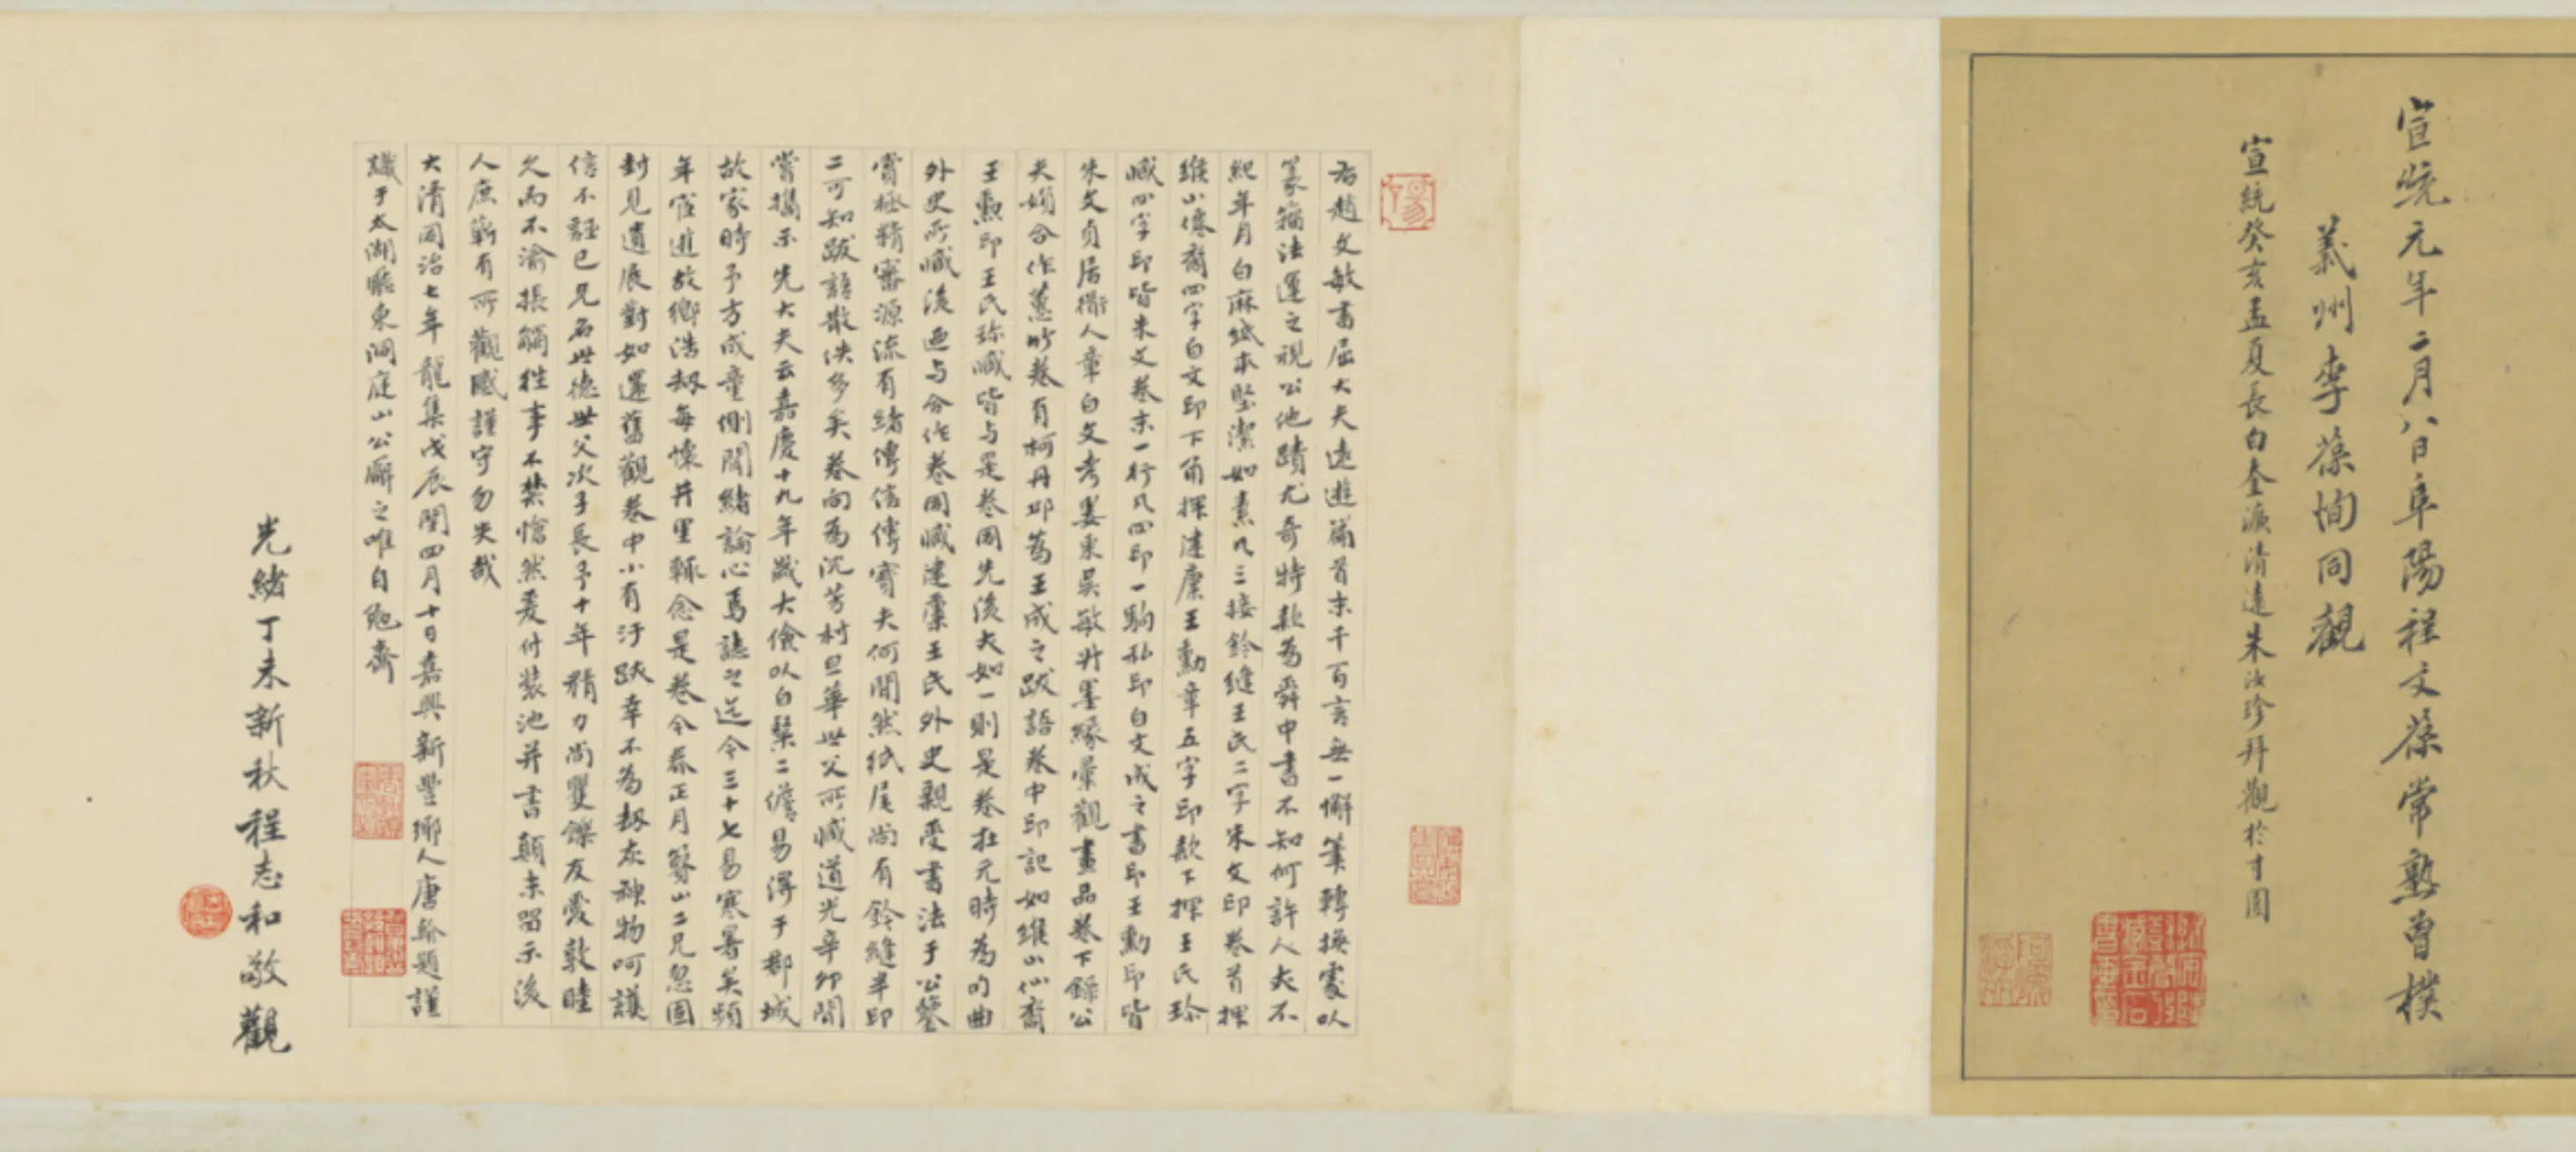 宣統元年二月八日阜陽程文葆常熟曾樸
義州李葆恂同觀
宣統癸亥孟夏長白奎濂清遠朱汝珍拜觀於寸園
右趙文敏書屈大夫遠遊篇首末千百言無一懈筆轉換處以
篆籀法運之視公他蹟尤奇特款為舜中書不知何許人夫不
紀年月白麻紙本堅潔如素凡三接鈐縫王氏二字朱文印卷首押
維山僊裔四字白文印下角押建康王勳章五字印款下押王氏珍
臧四字印皆朱文卷末一行凡四印一駒私印白文成之書印王勳印皆
朱文貞居衜人章白文考婁東吳敏升墨緣彙觀畫品卷下錄公
夫婦合作蕙竹卷有柯丹邱為王成之跋語卷中印記如維山仙裔
王勳印王氏珍臧皆与是卷同先後夫如一則是卷在元時為句曲
外史所臧後迺与合作卷同臧建業王氏外史親受書法于公鑒
賞極精審源流有緒傳信傳寶夫何間然紙尾尚有鈐縫半印
二可知跋語散佚多矣卷向為沉芳村旦華世父所臧道光辛卯間
嘗攜示先大夫云嘉慶十九年歲大儉以白粲二儋易得于郡城
故家時予方成童側聞緒論心焉誌之迄今三十七易寒暑矣頻
年宦遊故鄉浩劫每懷井里輒念是卷今春正月簳山二兄忽圅
封見遺展對如還舊觀卷中小有汙跌幸不為劫灰神物呵護
信不誣已兄名世德世父次子長予十年精力尚矍鑠友愛敦睦
久而不渝摂觸往事不禁愴然爰付裝池并書顛末畱示後
人庶蘄有所觀感謹守勿失哉
大清同治七年龍集戊辰閏四月十日嘉興新豐鄉人唐翰題謹
識于太湖廳東洞庭山公廨之唯自勉齋
光緒丁未新秋程志和敬觀